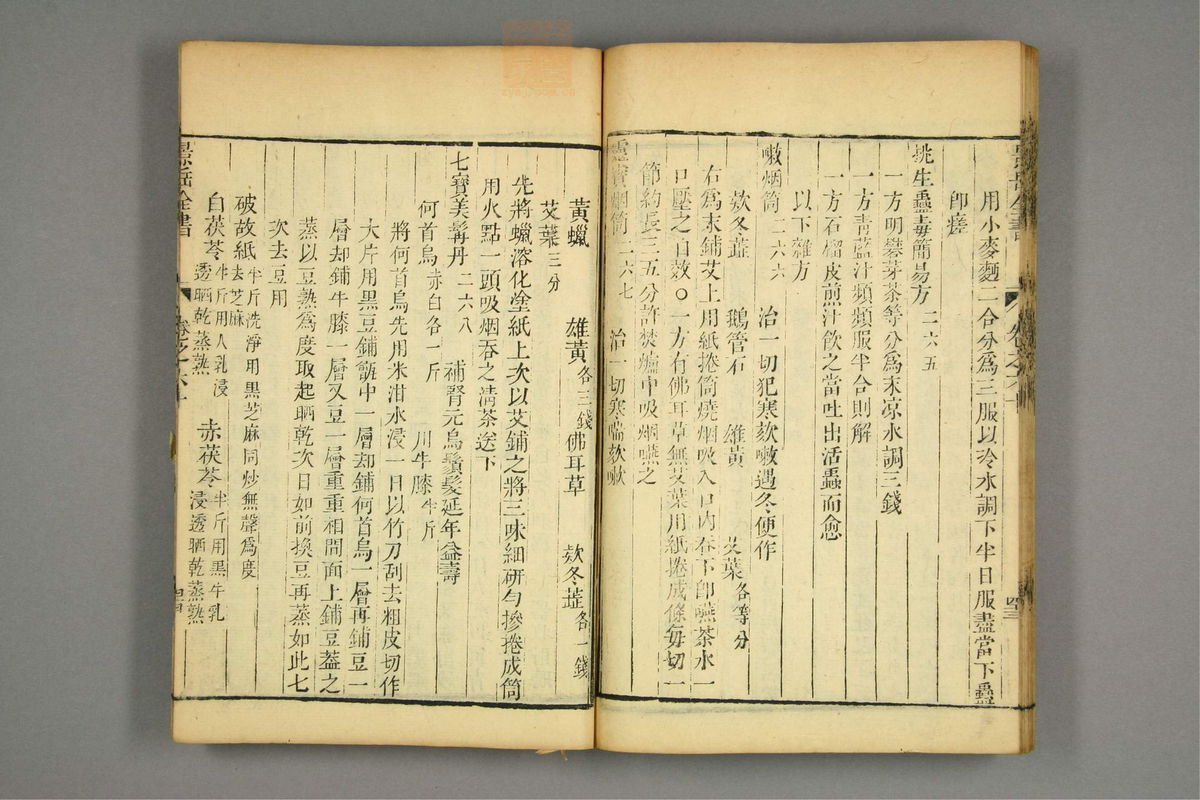 用小麥麵二合分爲三服以冷水調下半日服盡當下蠱
卽瘥
挑生蠱毒簡易方二六五
一方明礬芽茶等分爲末凉水調三錢
一方青藍汁頻頻服半合則解
一方石榴皮煎汁飮之當吐出活蟲而愈
以下雜方
嗽烟筒二六六 治一切犯寒欬嗽遇冬便作
欵冬蕋 鵝管石 雄黃 艾葉各等分
右爲末鋪艾上用紙捲筒燒烟吸入口內吞下卽嚥茶水一
口壓之自效○一方有佛耳草無艾葉用紙捲成條每切一
節約長三五分許焚爐中吸烟嚥之
靈寶烟筒二六七 治一切寒喘欬嗽
黃蠟 雄黃各三錢 佛耳草 欵冬蕋各一錢
艾葉三分
先將蠟溶化塗紙上次以艾鋪之將三味細研勻摻捲成筒
用火點一頭吸烟吞之淸茶送下
七寶美髯丹二六八 補腎元烏鬚髮延年益壽
何首烏赤白各一斤 川牛膝半斤
將何首烏先用米泔水浸一日以竹刀刮去粗皮切作
大片用黑豆鋪甑中一層却鋪何首烏一層再鋪豆一
層却鋪牛膝一層又豆一層重重相間面上鋪豆蓋之
蒸以豆熟爲度取起晒乾次日如前換豆再蒸如此七
次去豆用
破故紙半斤洗淨用黑芝麻同炒無聲爲度去芝麻
白茯苓半斤用人乳浸透晒乾蒸熟 赤茯苓半斤用黑牛乳浸透晒乾蒸熟
景岳全書
卷之六十
四十四